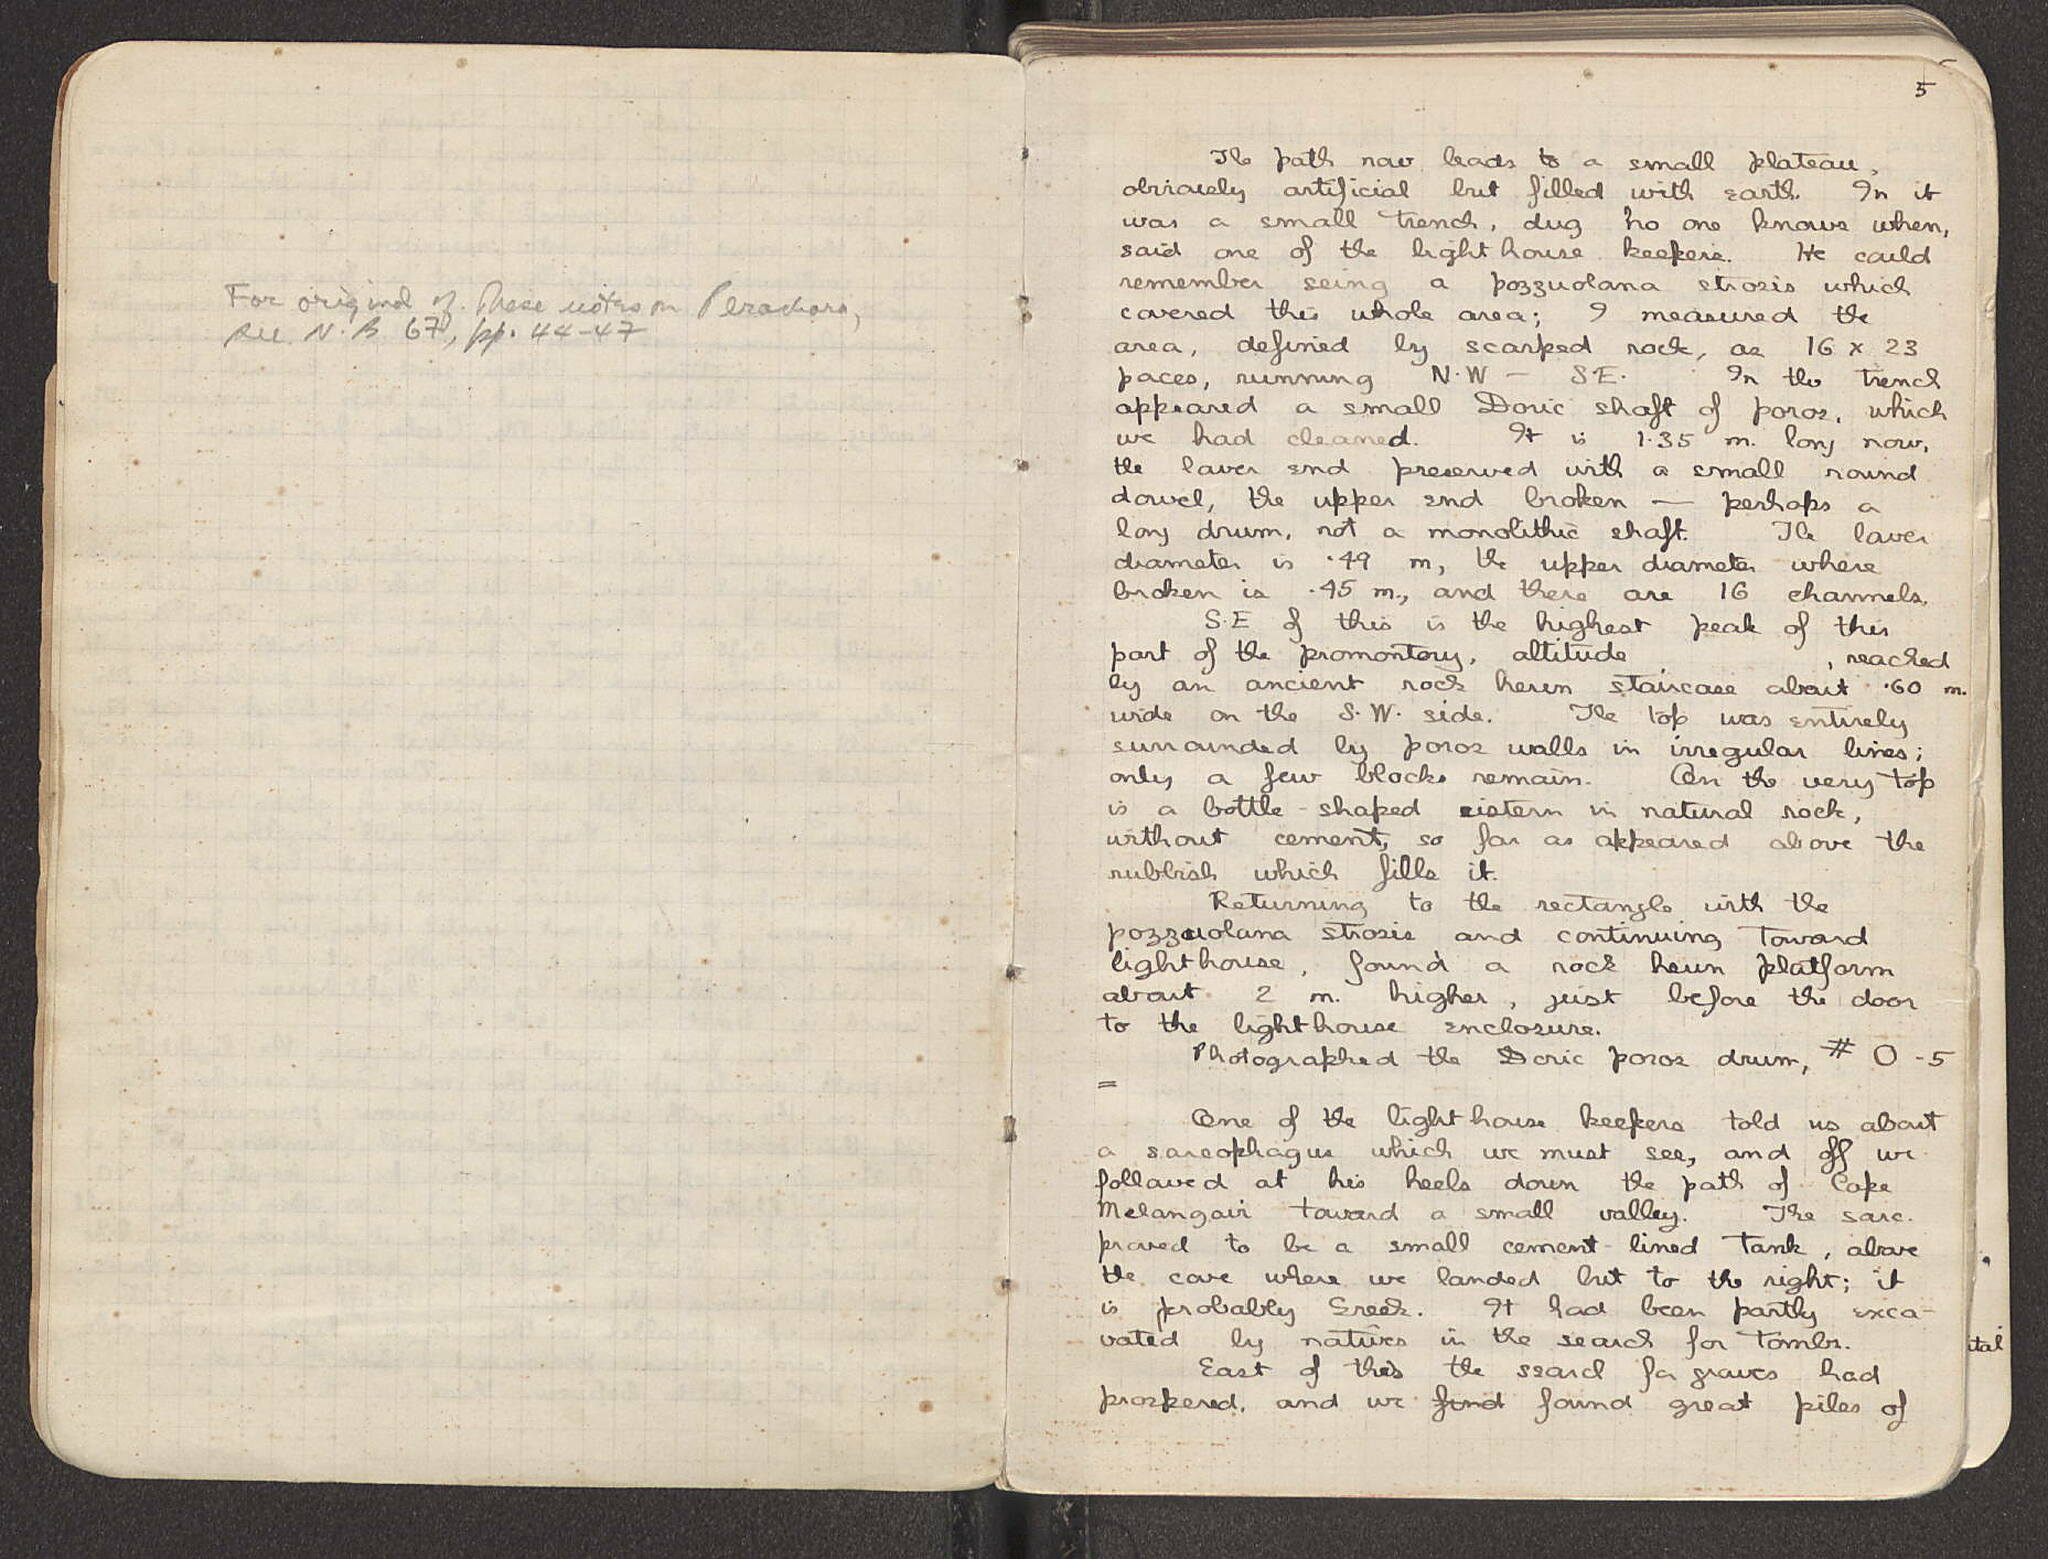 For original of these notes on Perachora,
see N.B. 67, pp. 44-47
5
The path now leads to a small plateau,
obviously artificial but filled with earth. In it
was a small trench, dug 'no one knows when,
said one of the lighthouse keepers. He could
remember seing a pozzuolana strosis which
covered this whole area; I measured the
area, defined by scarped rock, as 16 x 23
paces, running N.W — S.E. In the trench
appeared a small Doric shaft of poros, which
we had cleaned. It is 1.35 m. long now,
the lower end preserved with a small round
dowel, the upper end broken — perhaps a
long drum, not a monolithic shaft. The lower
diameter is .49 m, the upper diameter where
broken is .45 m., and there are 16 channels.
S.E of this is the highest peak of this
part of the promontory, altitude , reached
by an ancient rock hewn staircase about .60 m.
wide on the S.W. side. The top was entirely
surrounded by poros walls in irregular lines;
only a few blocks remain. On the very top
is a bottle-shaped cistern in natural rock,
without cement, so far as appeared above the
rubbish which fills it.
Returning to the rectangle with the
pozzuolana strosis and continuing toward
lighthouse, found a rock hewn platform
about 2 m. higher, just before the door
to the lighthouse enclosure.
Photographed the Doric poros drum, # O-5
=
One of the lighthouse keepers told us about
a sarcophagus which we must see, and off we
followed at his heels down the path of Cape
Melangavi toward a small valley. The sarc.
proved to be a small cement-lined tank, above
the cove where we landed but to the right; it
is probably Greek. It had been partly exca-
vated by natives in the search for tombs.
East of this the search for graves had
prospered, and we find found great piles of
ital